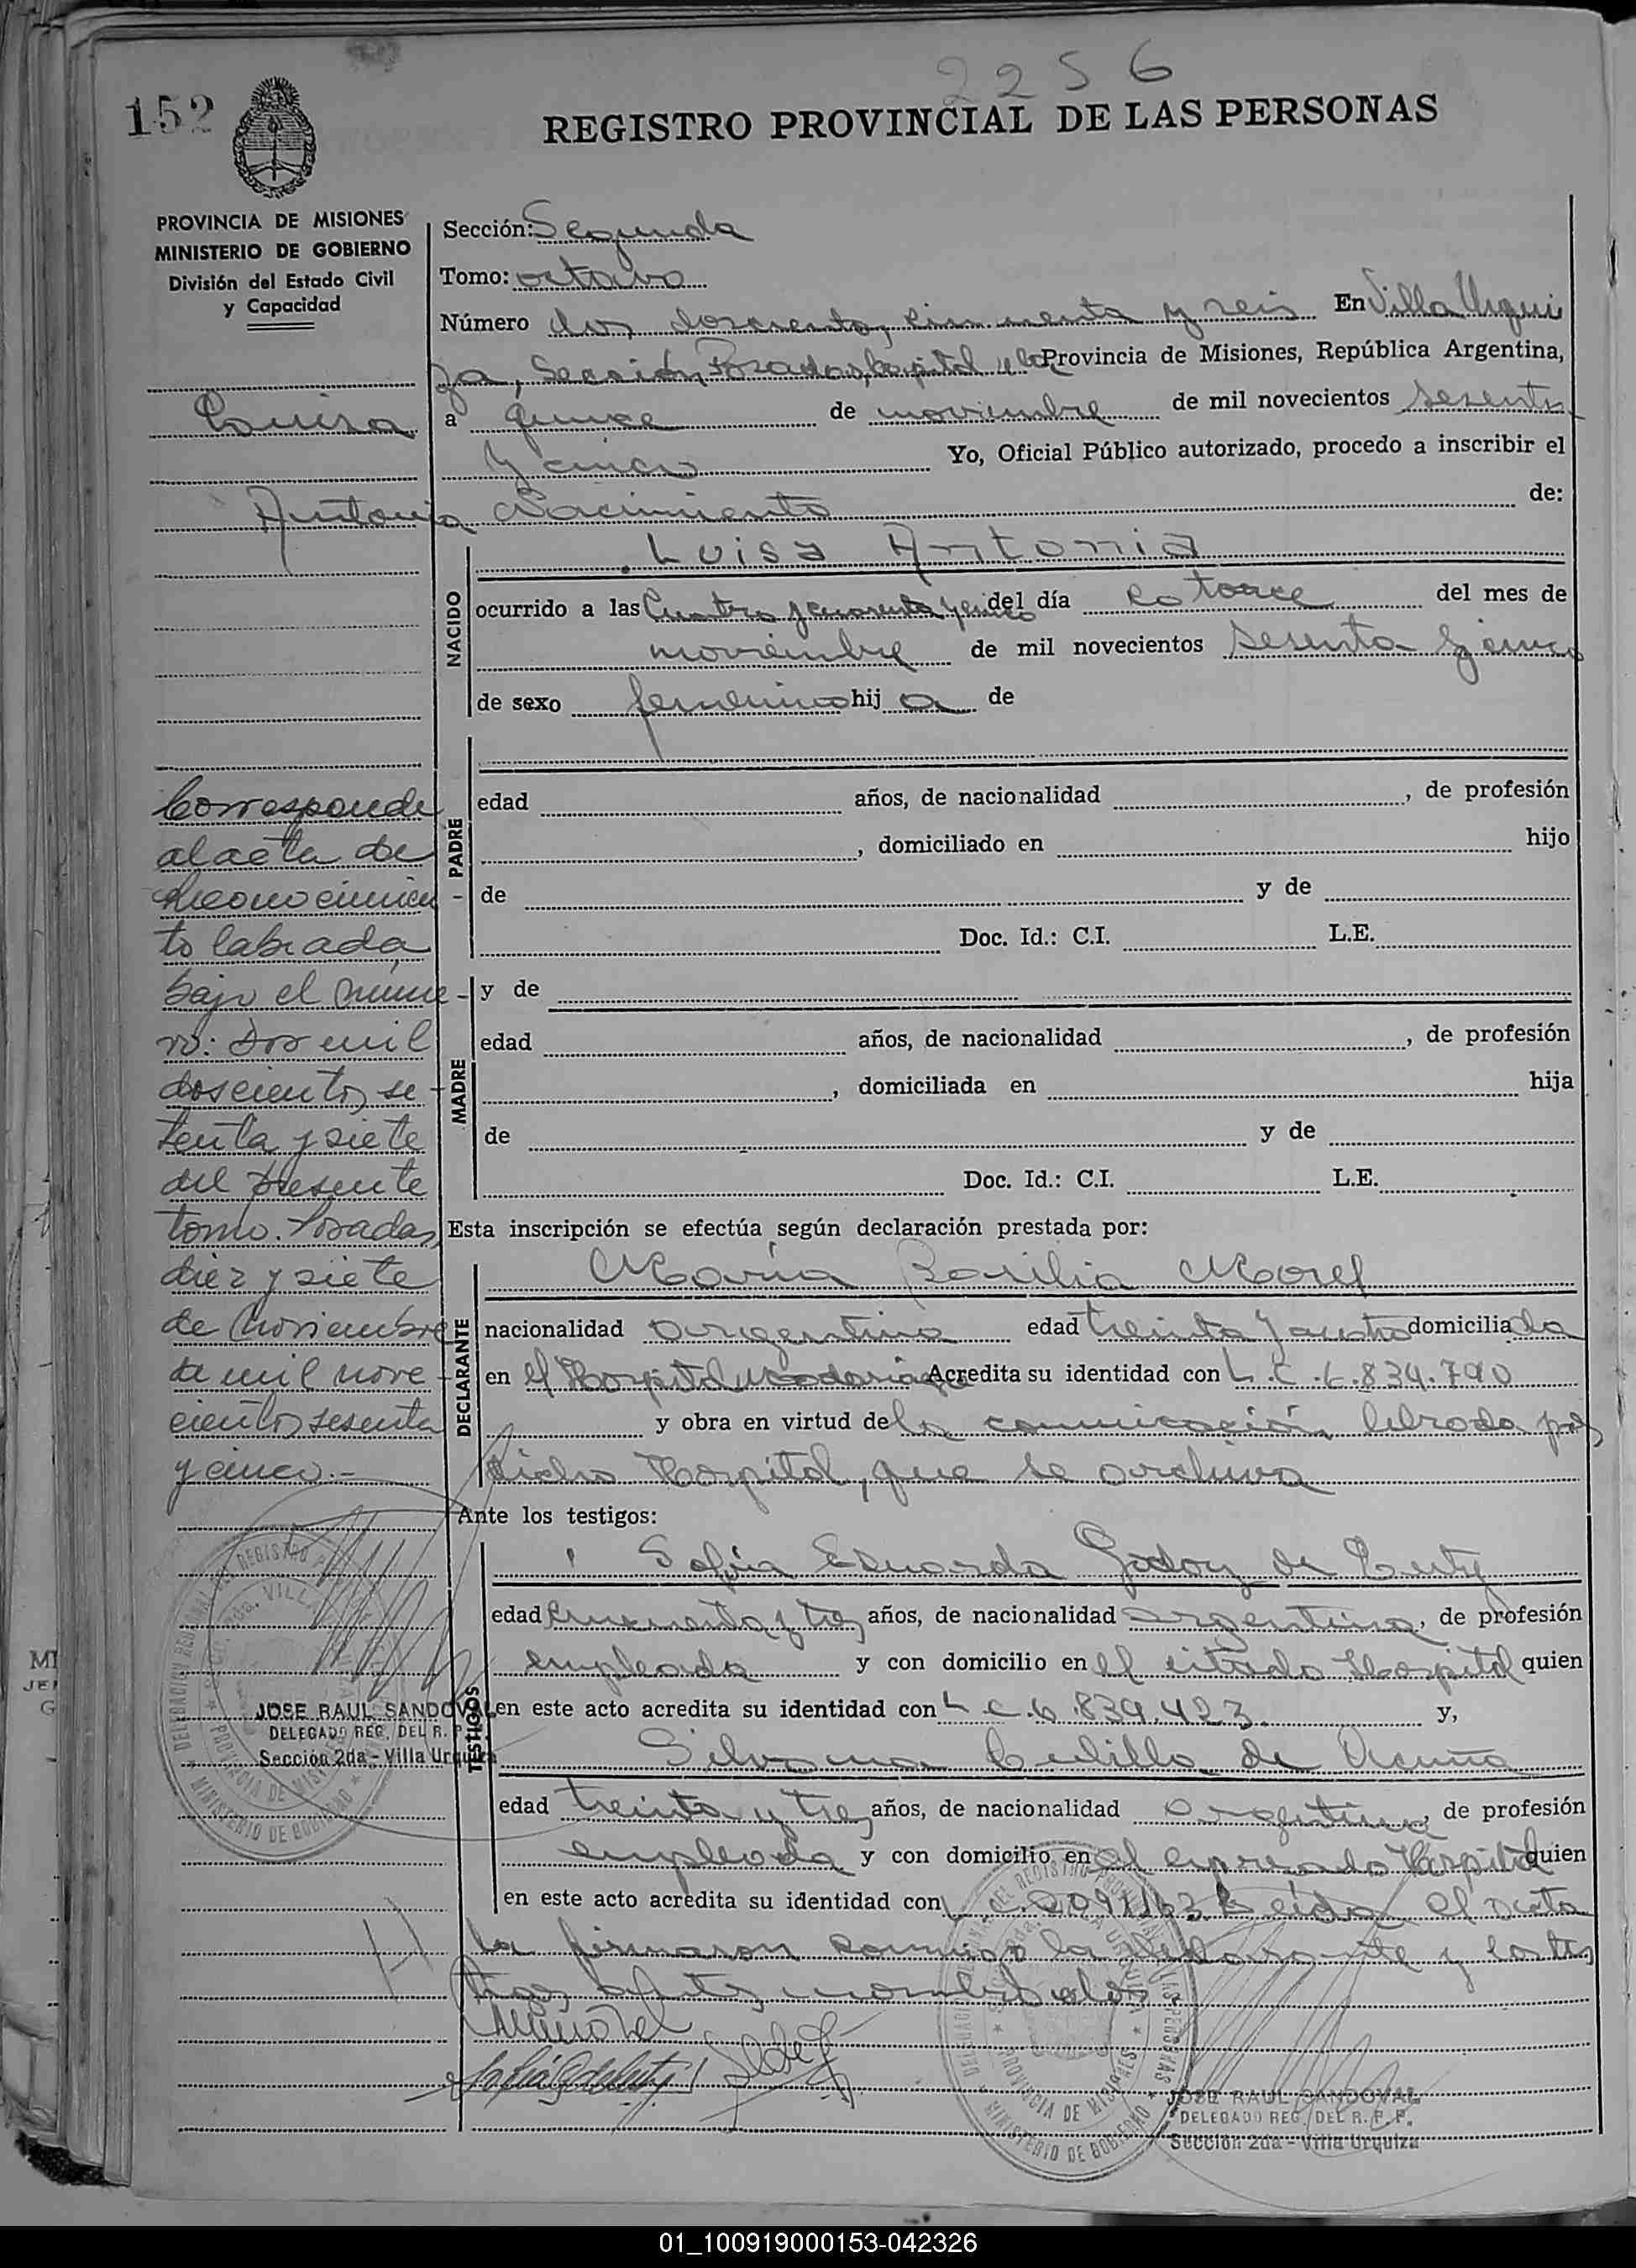 2256
152
REGISTRO PROVINCIAL DE LAS PERSONAS
PROVINCIA DE MISIONES
MINISTERIO DE GOBIERNO
División del Estado Civil
y Capacidad
Sección: Segunda
Tomo: octavo
Número dos, doscientos cincuenta y seis En Villa Urqui
za, Sección Posadas, Capital de la Provincia de Misiones, República Argentina,
a quince de noviembre de mil novecientos sesenta
y cinco Yo, Oficial Público autorizado, procedo a inscribir el
Nacimiento de:
Luisa
Antonia
NACIDO
Luisa Antonia
ocurrido a las Cuatro y cuarenta y cinco del día catorce del mes de
noviembre de mil novecientos sesenta y cinco
de sexo femenino hij a de
PADRE
edad años, de nacionalidad , de profesión
, domiciliado en hijo
de y de
Doc. Id.: C.I. L.E.
MADRE
y de
edad años, de nacionalidad , de profesión
, domiciliada en hija
de y de
Doc. Id.: C.I. L.E.
Corresponde
al acta de
Reconocimien
to labrada
bajo el núme-
ro: Dos mil
doscientos se-
tenta y siete
del presente
tomo. Posadas,
diez y siete
de Noviembre
de mil nove-
cientos sesenta
y cinco.-
JOSE RAUL SANDOVAL
DELEGADO REG. DEL R. P. P.
Sección 2da - Villa Urquiza
Esta inscripción se efectúa según declaración prestada por:
DECLARANTE
María Basilia Morel
nacionalidad argentina edad treinta y cuatro domiciliada
en el Hospital Madariaga Acredita su identidad con L.C. 6.834.790
y obra en virtud de la comunicación librada por
dicho Hospital, que se archiva
Ante los testigos:
TESTIGOS
Sofía Eduarda Godoy de
edad cincuenta y tres años, de nacionalidad argentina, de profesión
empleada y con domicilio en el citado Hospital quien
en este acto acredita su identidad con L C 6.839.423 y,
Silvana de Acuña
edad treinta y tres años, de nacionalidad argentina, de profesión
empleada y con domicilio en el expresado Hospital quien
en este acto acredita su identidad con L C. Leída el acta
la firmaron conmigo la declarante y los tes
tigos antes nombrados
JOSE RAUL SANDOVAL
DELEGADO REG. DEL R. P. P.
Sección 2da - Villa Urquiza
01_100919000153-042326